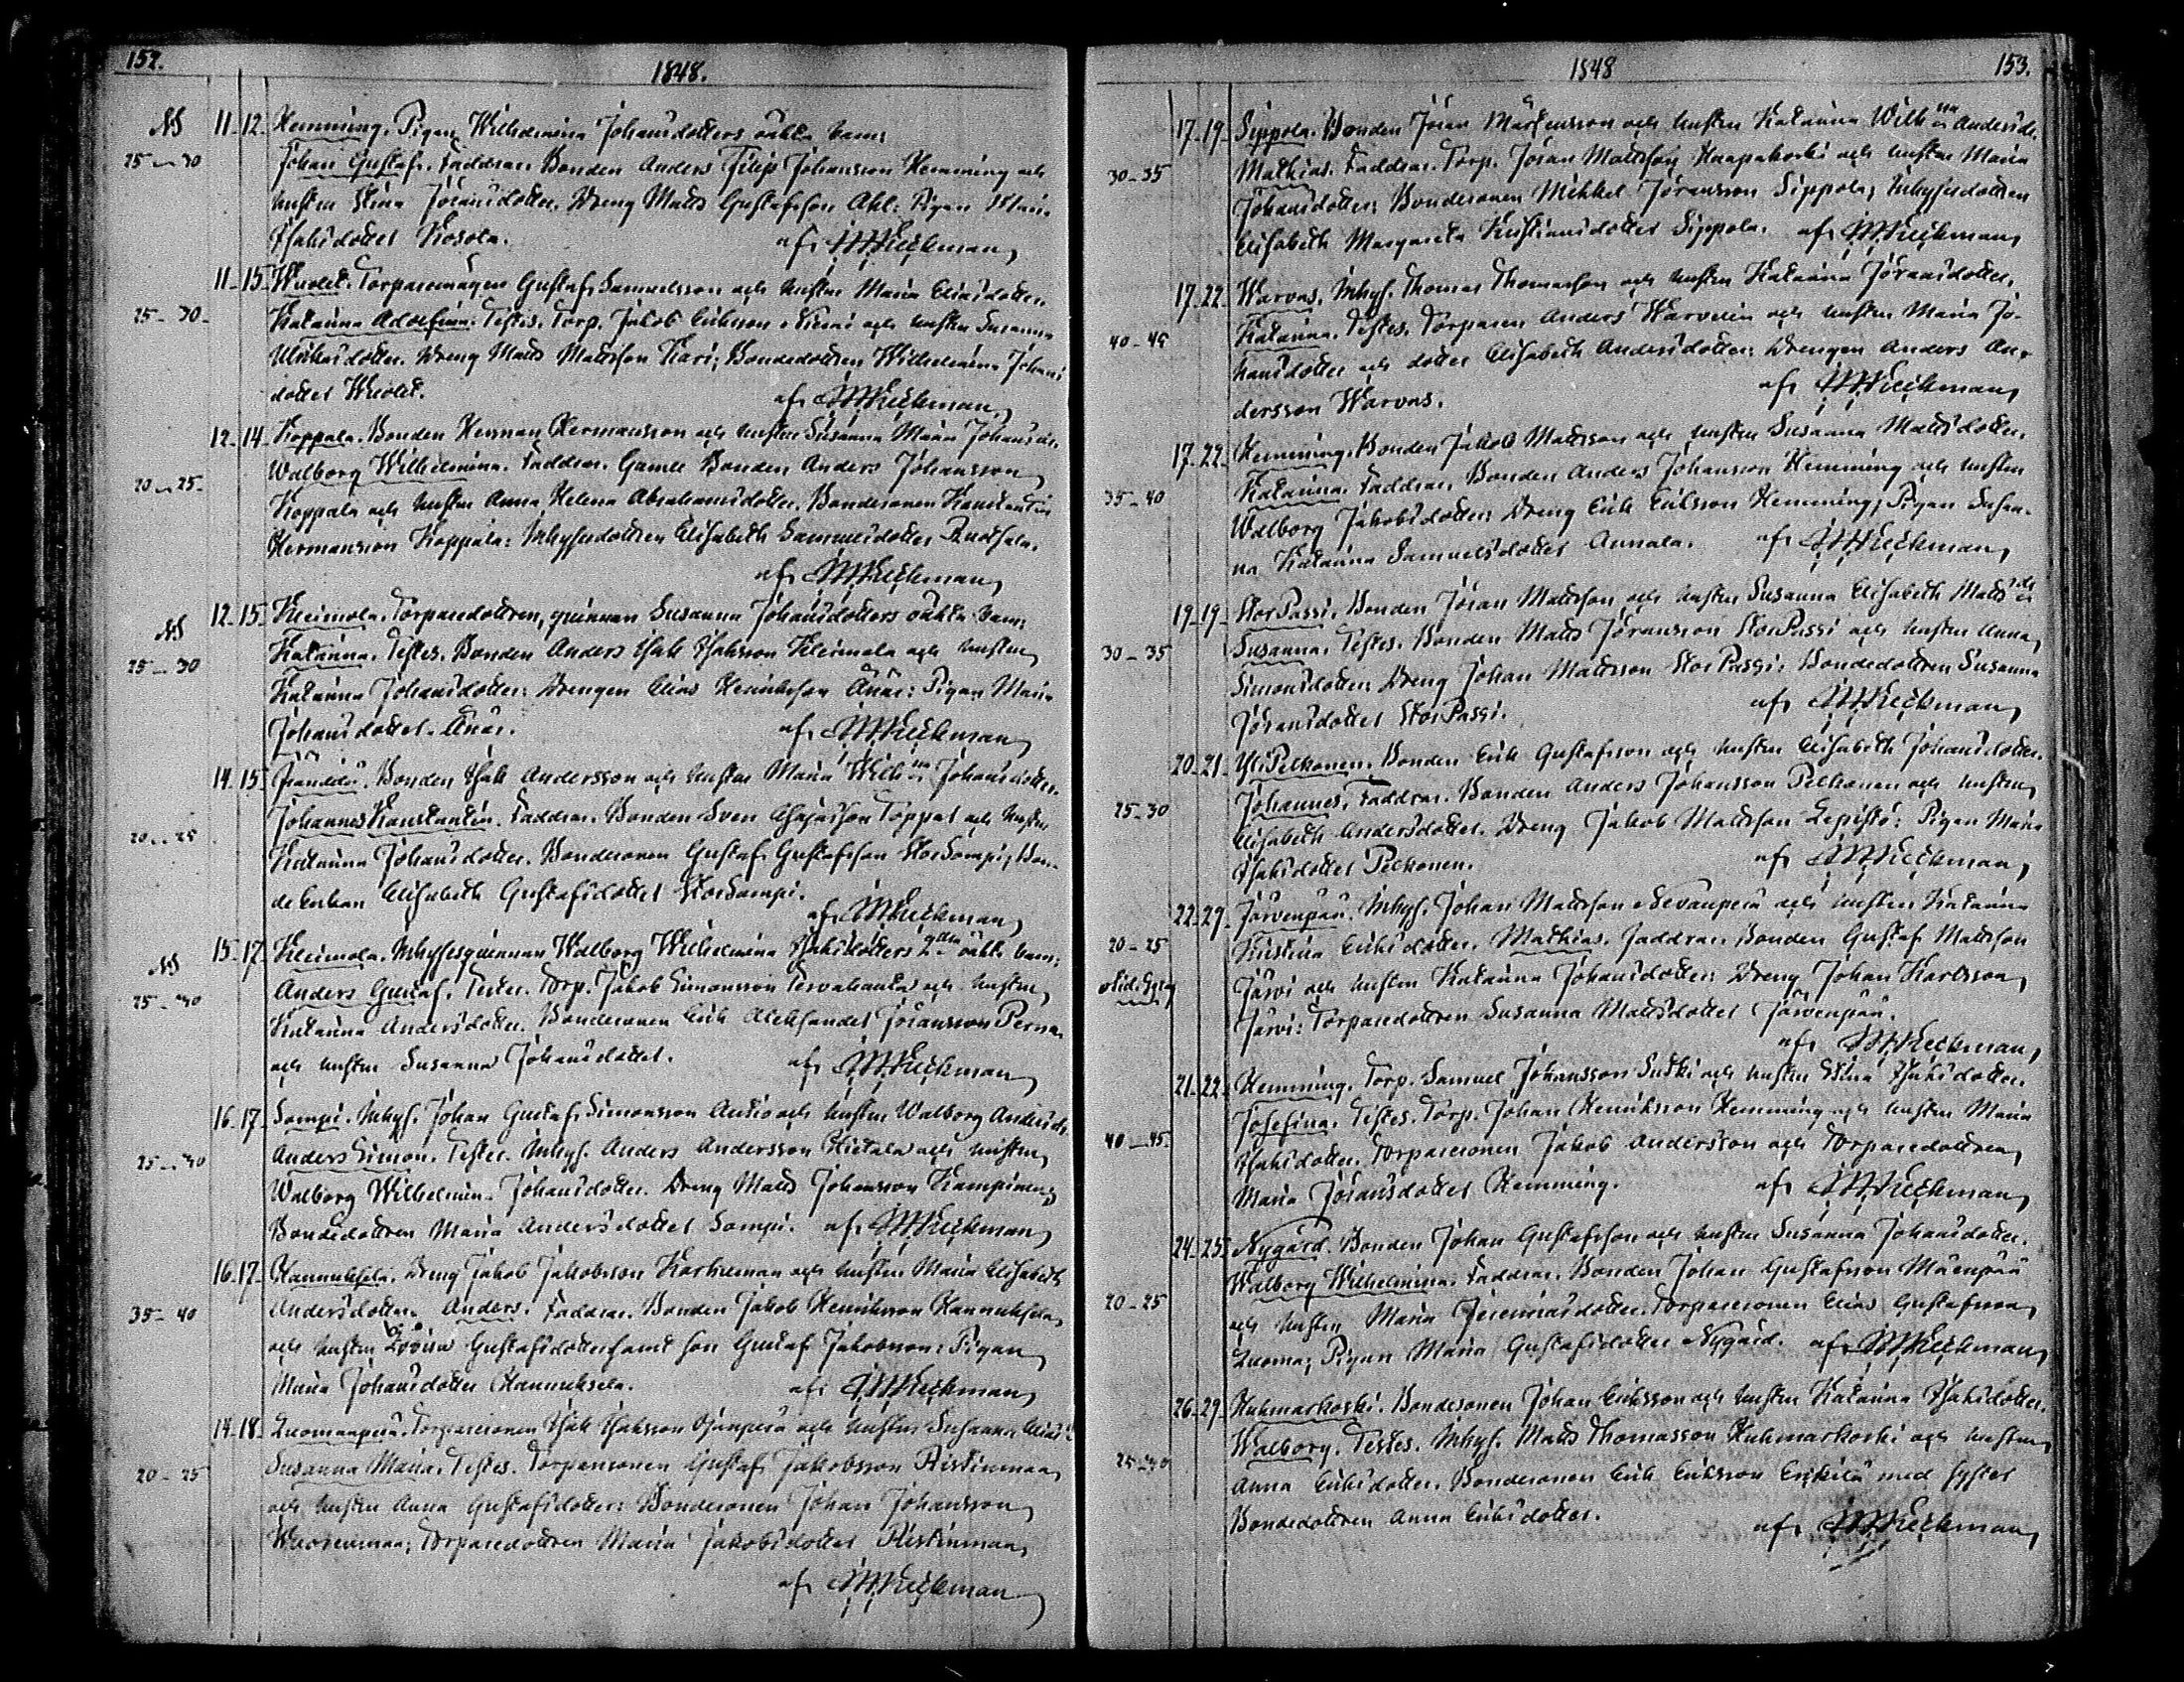 152.
1848.
NB 11-12. Hemming. Pigan Wilhelmina Johansdotters oäkta barn:
25-30 Johan Gustaf. Faddrar. Bonden Anders Filip Johansson Hemming och
hustru Stina Jöransdotter. Dreng Matts Gustafsson Ahl: Pigan Maria
Isaksdotter Kosola. af J.M.Keckman
11-15. Wuolet. Torparemågen Gustaf Samuelsson och hustru Maria Eliasdotter.
25-30. Katarina Adolfina. Testes. Torp. Jakob Eriksson och hustru Susanna
Mickelsdotter. Dreng Matts Mattsson Kari; Bondedottren Wilhelmina Johans
dotter Wuolet. af J.M.Keckman
12-14. Koppala. Bonden Herman Hermansson och hustru Susanna Maria Johansdr.
20-25. Walborg Wilhelmina. Faddrar. Gamle Bonden Anders Johansson
Koppala och hustru Anna Helena Abrahamsdotter. Bondesonen Konstantin
Hermansson Koppala: Inhysesdottren Elisabeth Samuelsdotter
af J.M.Keckman
NB 12-15. Kleimola. Torparedottren, quinnan Susanna Johansdotters oäkta barn:
25-30 Katarina. Testes. Bonden Anders Isak Isaksson Kleimola och hustru
Katarina Johansdotter: Drengen Elias Henriksson Änäs: Pigan Maria
Johansdotter Änäs. af J.M.Keckman
14-15. Bonden Isak Andersson och hustru Maria Wilh:na Johansdotter.
20-25 Johannes Konstantin. Faddrar. Bonden Sven Töppar och hustru
Katarina Johansdotter. Bondesonen Gustaf Gustafsson StorSompi; Bon-
de Enkan Elisabeth Gustafsdotter StorSompi.
af J.M.Keckman
NB 15-17. Kleimola. Inhysesquinnan Walborg Wilhelmina Isaksdotters 2:dra oäkta barn:
25-30 Anders Gustaf. Testes. Torp. Jakob Simonsson Tervahauta och hustru
Katarina Andersdotter. Bondesonen Erik Aleksander Jöransson Perna
och hustru Susanna Johansdotter. af J.M.Keckman
16-17. Sompi. Inhys. Johan Gustaf Simonsson Autio och hustru Walborg Andersdr.
25-30 Anders Simon. Testes. Inhys. Anders Andersson Hietala och hustru
Walborg Wilhelmina Johansdotter. Dreng Matts Johansson Kampinen
Bondedottren Maria Andersdotter Sompi. af J.M.Keckman
16-17. Hannuksela. Dreng Jakob Jakobsson Korhonen och hustru Maria Elisabeth
35-40 Andersdotter. Anders. Faddrar. Bonden Jakob Henriksson Hannuksela
och hustru Lovisa Gustafsdotter samt son Gustaf Jakobsson: Pigan
Maria Johansdotter Hannuksela. af J.M.Keckman
14-18. Luomanperä. Torparesonen Isak Isaksson Ojanperä och hustru Susanna Eliasdr
20-25 Susanna Maria. Testes. Torparesonen Gustaf Jakobsson Ristinmaa
och hustru Anna Gustafsdotter: Bondesonen Johan Johansson
Wuorenmaa; Torparedottren Maria Jakobsdotter Ristinmaa
af J.M.Keckman
1848
153.
17-19. Sippola. Bonden Jöran Mårtensson och hustru Katarina Wilh:na Andersdr.
30-35 Mathias. Faddrar. Torp. Jöran Mattsson Haapakoski och hustru Maria
Johansdotter: Bondesonen Mikkel Jöransson Sippola; Inhysesdottren
Elisabeth Margareta Kristiansdotter Sippola. af J.M.Keckman
17-22. Warvas. Inhys. Thomas Thomasson och hustru Katarina Jöransdotter.
40-45 Katarina. Testes. Torparen Anders Warvelin och hustru Maria Jo-
hansdotter och dotter Elisabeth Andersdotter: Drengen Anders An-
dersson Warvas. af J.M.Keckman
17-22. Hemming. Bonden Jakob Mattsson och hustru Susanna Mattsdotter.
35-40 Katarina. Faddrar. Bonden Anders Johansson Hemming och hustru
Walborg Jakobsdotter: Dreng Erik Eriksson Hemming; Pigan Susan-
na Katarina Samuelsdotter Annala. af J.M.Keckman
19-19. StorPassi. Bonden Jöran Mattsson och hustru Susanna Elisabeth Mattsdr
30-35 Susanna. Testes. Bonden Matts Jöransson StorPassi och hustru Anna
Simonsdotter: Dreng Johan Mattsson StorPassi: Bondedottren Susanna
Jöransdotter StorPassi. af J.M.Keckman
20-21. YliPelkonen. Bonden Erik Gustafsson och hustru Elisabeth Johansdotter.
25-30 Johannes. Faddrar. Bonden Anders Johansson Pelkonen och hustru
Elisabeth Andersdotter. Dreng Jakob Mattsson Lepistö: Pigan Maria
Isaksdotter Pelkonen. af J.M.Keckman
22-29. Järvenpää. Inhys. Johan Mattsson Nevanperä och hustru Katarina
20-25 Kristina Eriksdotter. Mathias. Faddrar. Bonden Gustaf Mattsson
Järvi och hustru Katarina Johansdotter: Dreng Johan Karlsson
Järvi: Torparedottren Susanna Mattsdotter Järvenpää.
af J.M.Keckman
21-22. Hemming. Torp. Samuel Johansson Sutki och hustru Stina Isaksdotter.
40-45. Josefina. Testes. Torp. Johan Henriksson Hemming och hustru Maria
Isaksdotter. Torparesonen Jakob Andersson och Torparedottren
Maria Jöransdotter Hemming. af J.M.Keckman
24-25. Nygård. Bonden Johan Gustafsson och hustru Susanna Johansdotter.
20-25 Walborg Wilhelmina. Faddrar. Bonden Johan Gustafsson Mäenpää
och hustru Maria Jeremiasdotter. Torparesonen Elias Gustafsson
Luoma; Pigan Maria Gustafsdotter Nygård. af J.M.Keckman
26-29. Kuhmarkoski. Bondesonen Johan Eriksson och hustru Katarina Isaksdotter.
25-30 Walborg. Testes. Inhys. Matts Thomasson Kuhmarkoski och hustru
Anna Eriksdotter. Bondesonen Erik Eriksson Erkkilä med syster
Bondedottren Anna Eriksdotter. af J.M.Keckman